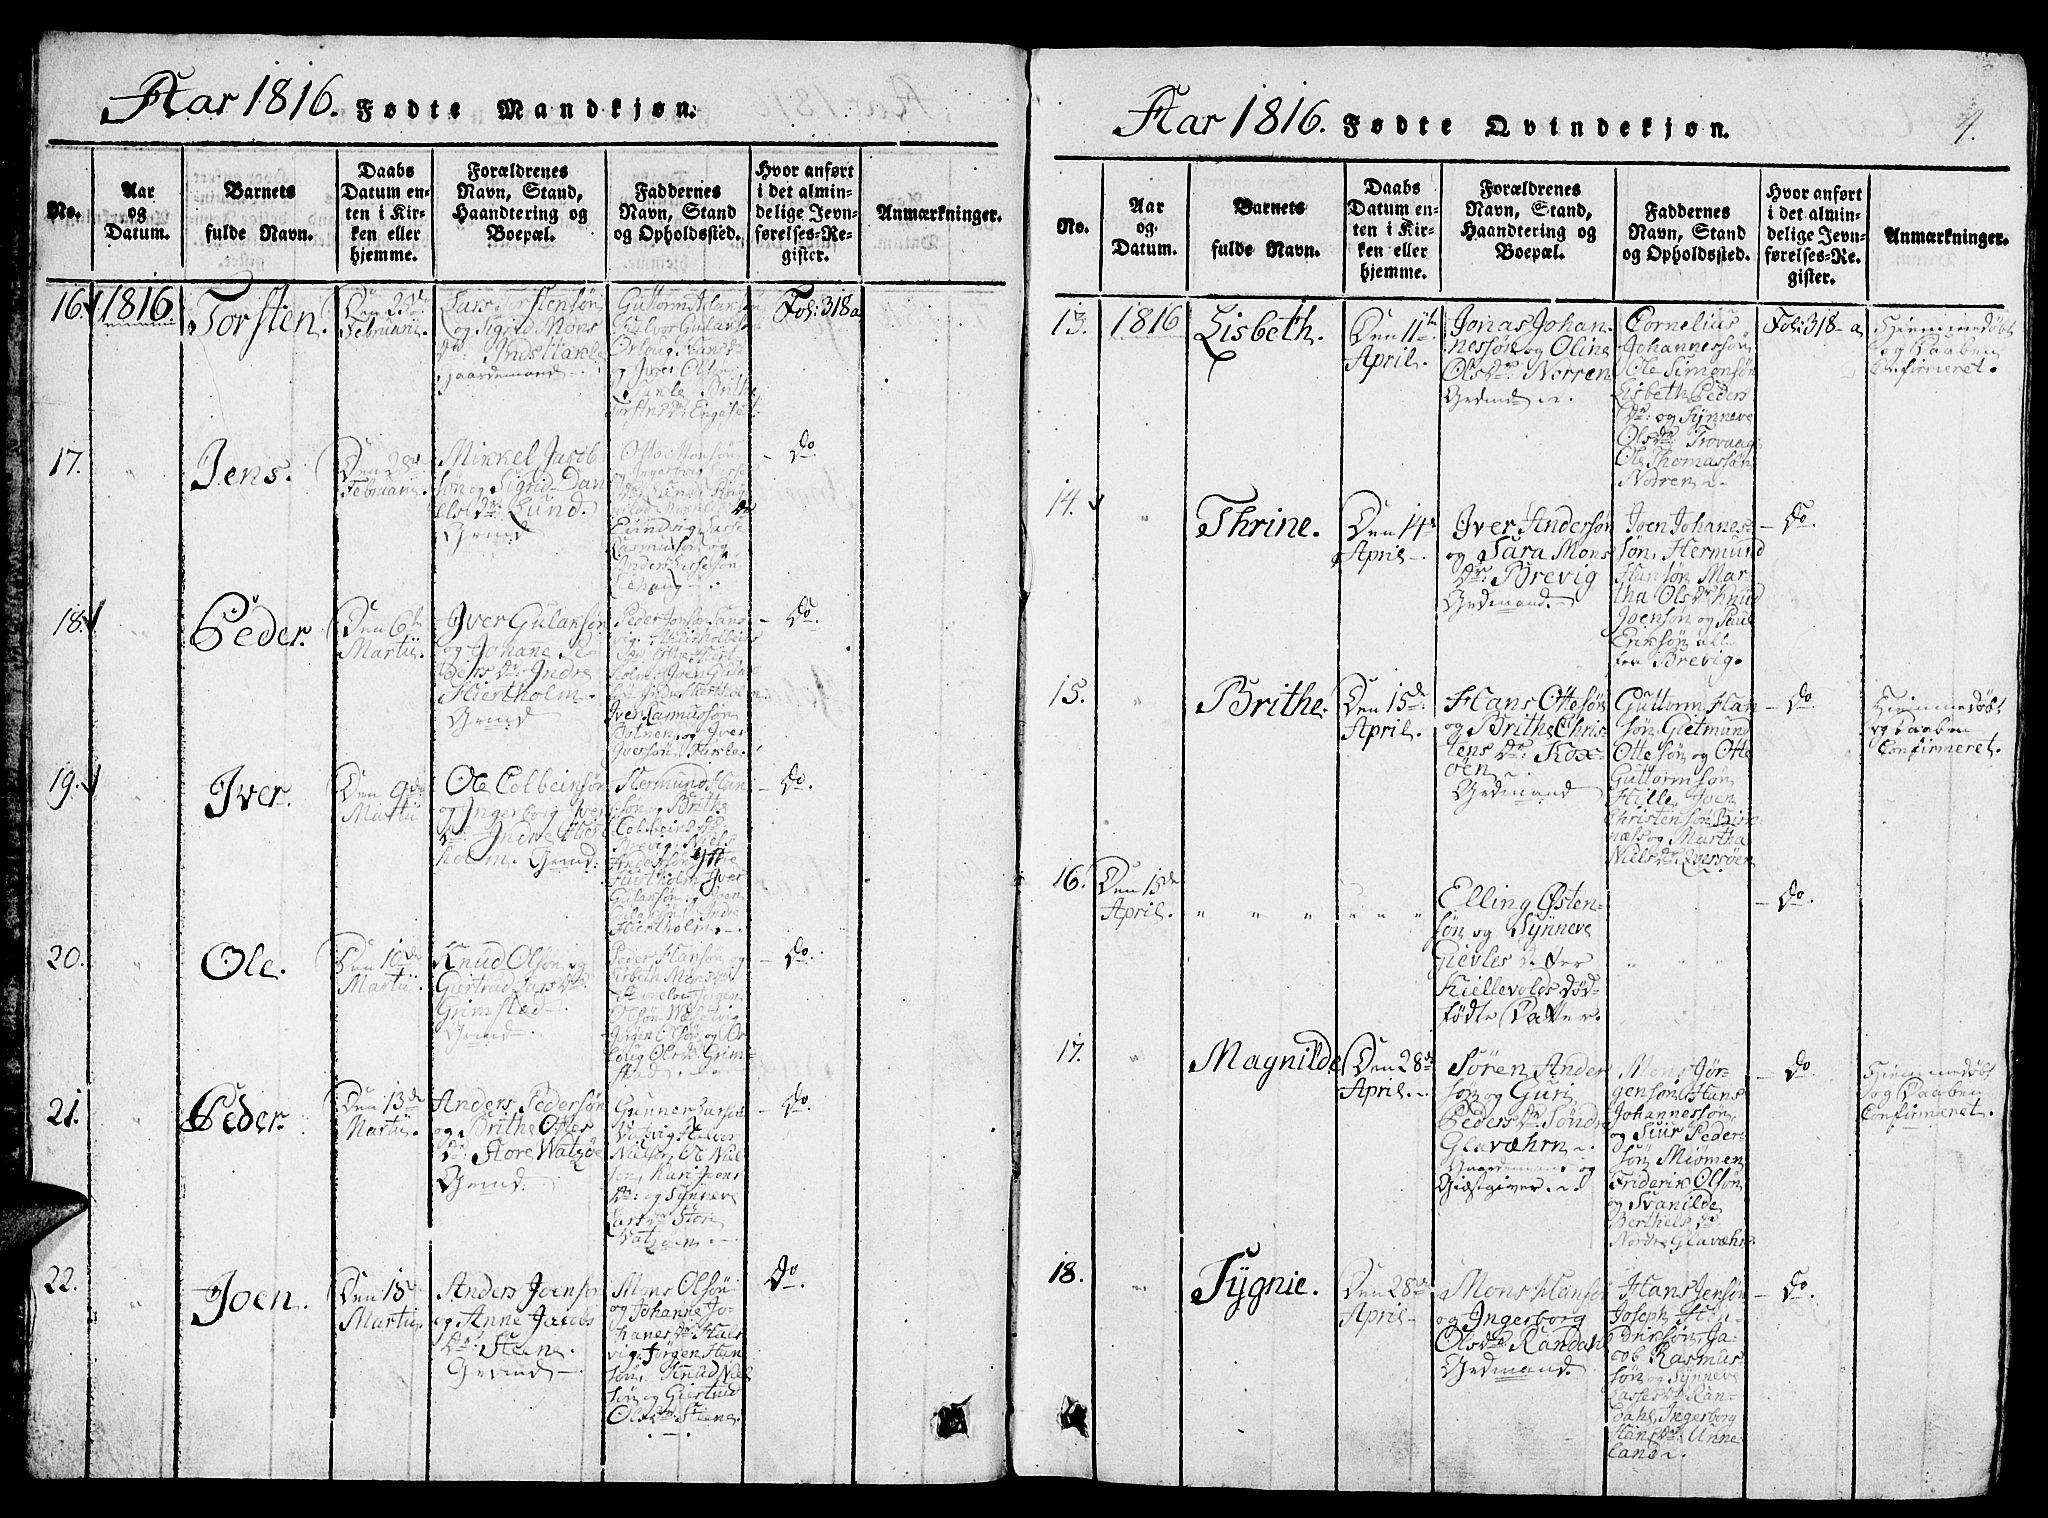 Aar 1816. Fødte Mandkjøn.
No.
Aar
og
Datum.
Barnets
fulde Navn.
Daabs
Datum en-
ten i Kir-
ken eller
hjemme.
Forældrenes
Navn, Stand,
Haandtering og
Boepæl.
Faddernes
Navn, Stand
og Opholdssted.
Hvor anført
i det almin-
delige Jevn-
førelses-Re-
gister.
Anmærkninger.
16.
1816
Torsten.
Februarii
og Sigrid Mons
Dr:
Gaardemand
Guttorm
og Iver
Brithe
Fol: 318 a
17.
Jens.
Den 28d
Februarii.
Mikkel Jacob-
søn og Sigrid Dan
elsdr: Lund.
Grmd
Rasmussøn og
Anders
Do
18.
Peder.
Den 6te
Martii
Iver Gulaksøn
og Johane Pe-
dersdr Indre
Hiertholm.
Grmd
Peder
Iver Rasmussøn
og Iver
Iversøn
Do.
19.
Iver.
Den 9de
Martii
Ole Colbeinsøn
og Ingerborg Ivers
dr. Indre Hiert-
holm. Grmd.
Hermund Han
søn og Brithe
Colbeinsdr
Brevig. Niels
Anderssøn
Hiertholm Iver
Gulaksøn, og Joen
Gulaksøn Indre
Hiertholm.
Do.
20.
Ole.
Den 10de
Martii
Knud Olsøn og
Giertrud Larsdr.
Grimstad
Grmd
Peder Hansøn og
Lisbeth Monsdr
Jørgen
Olsøn
Jørgen Olsøn, og
Olsdr Grim-
stad
Do.
21.
Peder.
Den 13de
Martii
Anders Pedersøn
og Brithe Ottes
dr: Store Watzøe
Grmd.
Gunner Larsøn
Halvor
Nielsøn, Ole Niel
søn, Kari Joens
dr: og Synneve
Larsdr Store
Vatzøen.
Do.
22.
Joen.
Den 15de
Martii
Anders Joensøn
og Anne Jacobs
dr. Steene
Grmd
Mons Olsøn
og Johanne Jo-
hanesdr Hals
vig. Jørgen Han
søn, Knud Niel
søn og Giertrud
Olsdr Steene.
Do.
Aar 1816. Fødte Qvindekjøn.
4.
No.
Aar
og
Datum.
Barnets
fulde Navn.
Daabs
Datum en-
ten i Kir-
ken eller
hjemme.
Forældrenes
Navn, Stand,
Haandtering og
Boepæl.
Faddernes
Navn, Stand
og Opholdssted.
Hvor anført
i det almin-
delige Jevn-
førelses-Re-
gister.
Anmærkninger.
13.
1816
Lisbeth.
Den 11te
April.
Jonas Johan-
nessøn og Oline
Olsdr. Norren
Grdmd
Cornelius
Johannessøn
Ole Simonsøn
Lisbeth Peders
dr: og Synneve
Olsdr Trovaag
Ole Thomassøn
Norren
Fol: 318 - a
Hiemmedøbt
og Daaben
Confirmeret.
14.
Thrine.
Den 14d
April
Iver Andersøn
og Sara Mons
dr. Brevig
Grdmand.
Joen Johane
søn, Hermund
Hansøn Mar-
tha Olsdr Knud
Joensøn og Paul
Eriksøn alle
fra Brevig.
Do.
15.
Brithe.
Den 15de
April.
Hans Ottesøn
og Brithe Chris-
tensdr. Kox-
øen
Grdmand
Guttorm Han
søn, Gietmund
Ottesøn og Otte
Guttormsøn
Hille, Joen
Christensøn
og Martha
Nielsdr.
Do
Hiemmedøbt
og Daaben
Confirmeret.
16.
Den 15de
April.
" " " " " "
Elling Østen-
søn og Synneve
Gievles detter
Kiellevolds død-
fødte Datter.
Do.
17.
Magnilde
Den 28de
April.
Søren Ander
søn og Guri
Pedersdr Søndre
Glavæhrn
Gaardemand og
Giæstgiver.
Mons Jør-
gensøn, Hans
Johannessøn,
og Siur Peder
søn Miømen
Friderik Olsøn
og Svanilde
Berthelsdr
Nordre Glavæhrn
Do
Hiemmedøbt
og Daaben
Confirmeret.
18.
Sygnie.
Den 28de
April
Mons Hansøn
og Ingerborg
Olsdr. Randahl
Grdmand.
Hans Jensøn
Joseph Hen-
driksøn, Ja-
cob Rasmus
søn og Synneve
Lassesdr Ran-
dahl, Ingerborg
Hansdr: Unne-
land
Do.